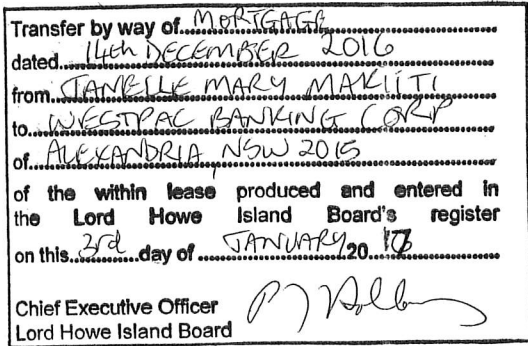 Transfer by way of MORTGAGE
dated 14th DECEMBER 2016
from JANELLE MARY MAKIITI
to WESTPAC BANKING CORP
of ALEXANDRIA NSW 2015
of the within lease produced and entered in
the Lord Howe Island Board's register
on this 3rd day of JANUARY 2017
Chief Executive Officer
Lord Howe Island Board